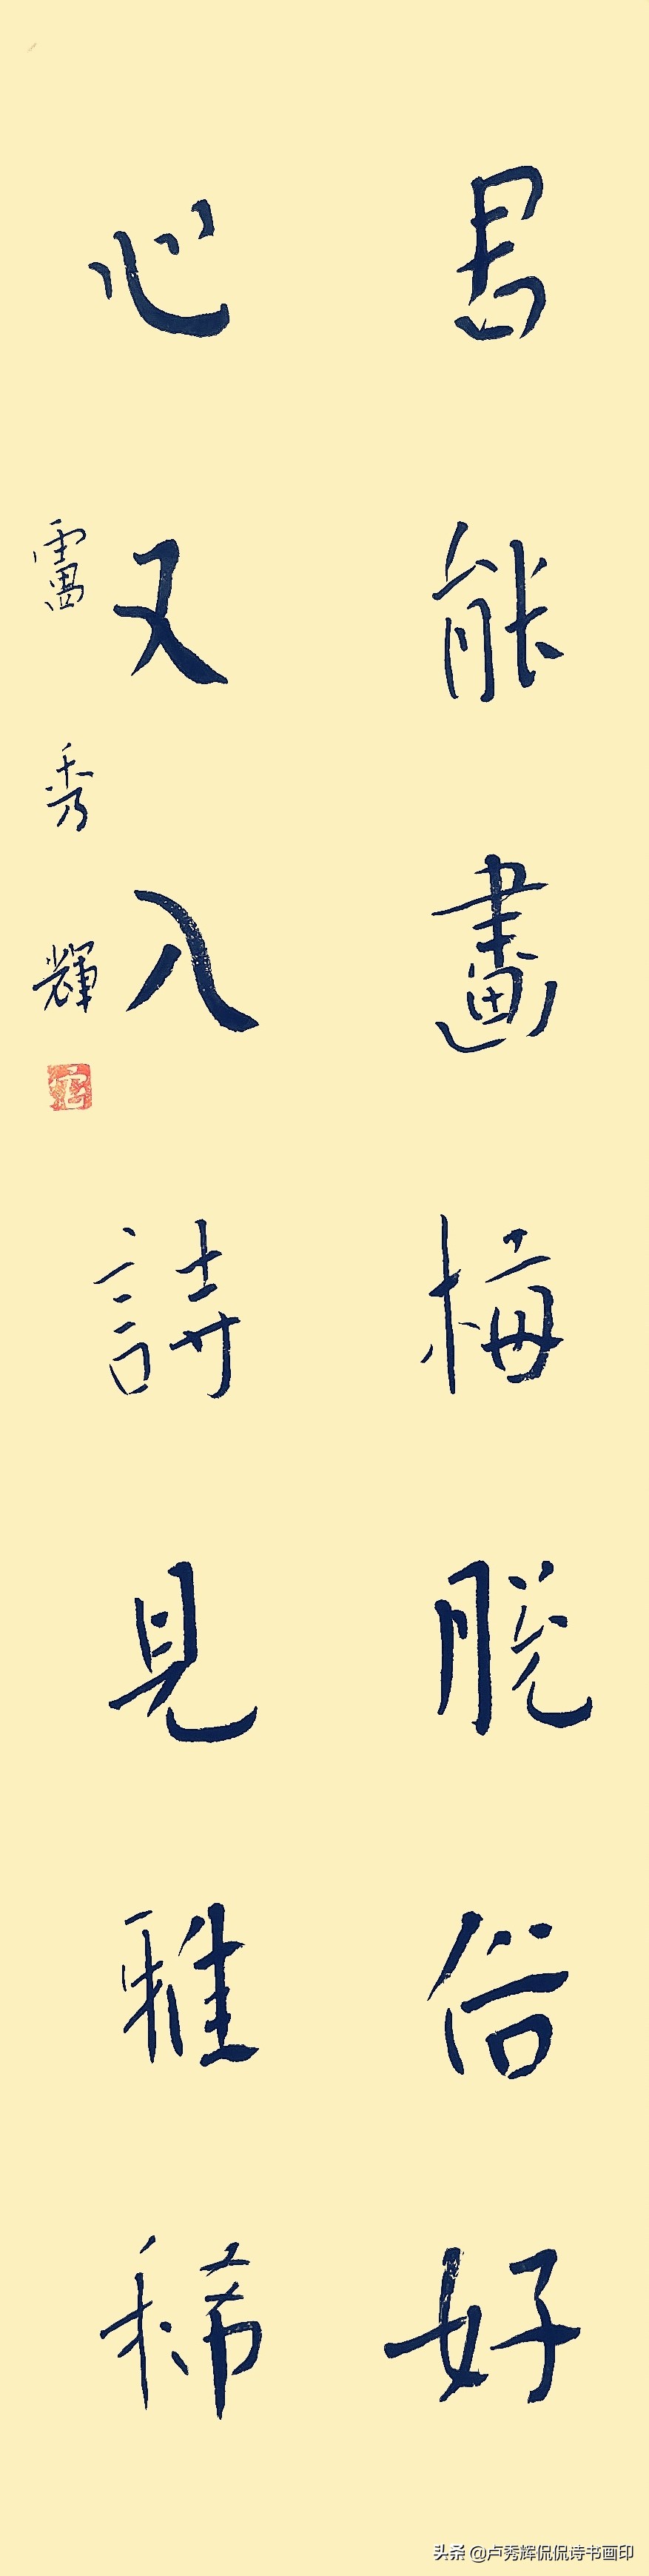 君能畫梅脱俗好
心又入詩見雅稀
盧秀輝
头条 @卢秀辉侃侃诗书画印